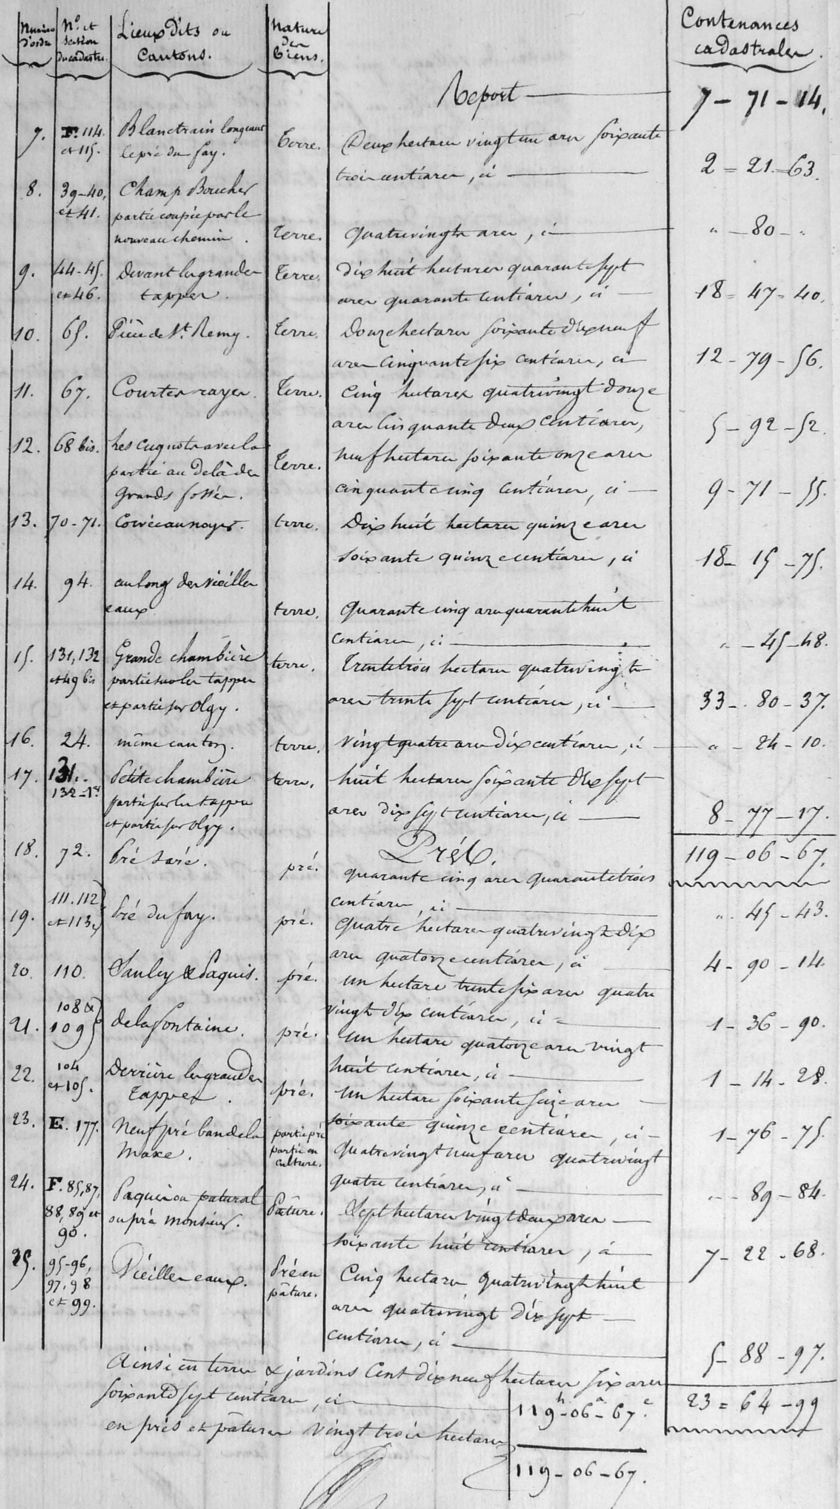 Numéro d'ordre | N.° et section du cadastre | Lieux dits ou Cantons. | Nature des Biens. | Contenances cadastrales.
Report — 7 – 71 – 14.
7. F. 114. Blanctrain longeant Terre. Deux hectares vingt un ares soixante
et 115. le pré du fay. trois centiares, ci — 2 = 21 – 63.
8. 39–40, Champ Boucher
et 41. partie coupée par le
nouveau chemin. Terre. quatre vingts ares, ci — " – 80 – "
9. 44–45. Devant les grandes Terre. dix huit hectares quarante sept
et 46. tappes. ares quarante centiares, ci — 18 = 47 = 40.
10. 65. Pièce de St. Remy. Terre. Douze hectares soixante dix neuf
ares cinquante six centiares, ci — 12 – 79 – 56.
11. 67. Courtes rayes. Terre. Cinq hectares quatre vingt douze
ares cinquante deux centiares, 5 – 92 – 52.
12. 68 bis. Les Cugnots avec la neuf hectares soixante onze ares
partie au delà des Terre.
Grands fossés. cinquante cinq centiares, ci — 9 – 71 – 55.
13. 70–71. Corvée au noyer. terre. Dix huit hectares quinze ares
soixante quinze centiares, ci 18 – 15 – 75.
14. 94. au long des vieilles
eaux terre. quarante cinq ares quarante huit
centiares, ci — " – 45 – 48.
15. 131, 132 Grande chambière terre. Trente trois hectares quatre vingts
et 49 bis partie sur les tappes
et partie sur Olgy. ares trente sept centiares, ci — 33 – 80 – 37.
16. 24. même canton. terre. vingt quatre ares dix centiares, ci — " – 24 – 10.
17. 131. Petite chambière terre. huit hectares soixante dix sept
132 – partie sur les tappes
et partie sur Olgy. ares dix sept centiares, ci — 8 – 77 – 17.
119 – 06 – 67.
Prés.
18. 72. Pré taré. pré. quarante cinq ares quarante trois
centiares, ci — " – 45 – 43.
19. 111. 112 et 113. Pré du fay. pré. quatre hectares quatre vingt dix
ares quatorze centiares, ci 4 – 90 – 14.
20. 110. Saulcy & Paquis. pré. un hectare trente six ares quatre
vingt dix centiares, ci = 1 – 36 – 90.
21. 108 & 109 de la fontaine. pré. un hectare quatorze ares vingt
huit centiares, ci — 1 – 14 – 28.
22. 104 et 105. Derrière les grandes tappes. pré. un hectare soixante seize ares —
soixante quinze centiares, ci – 1 – 76 – 75.
23. E. 177. Neuf pré ban de la Maxe. partie pré partie en culture. quatre vingt neuf ares quatre vingt
quatre centiares, ci — " – 89 – 84.
24. F. 85, 87, 88, 89 et 90. Paquis ou patural ou pré Monsieur. Pâture. Sept hectares vingt deux ares —
soixante huit centiares, ci — 7 – 22 – 68.
25. 95–96, 97, 98 et 99. Vieilles eaux. Pré en pâture. Cinq hectares quatre vingt huit
ares quatre vingt dix sept —
centiares, ci — 5 – 88 – 97.
Ainsi en terres & jardins Cent dix neuf hectares six ares
soixante sept centiares, ci — 119.h – 06.a – 67.c 23 = 64 – 99
en prés et patures vingt trois hectares
119 – 06 – 67.